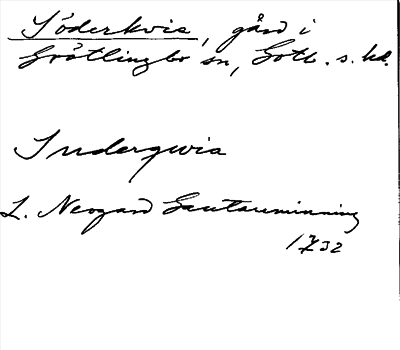 Söderkvie, gård i
Grötlingbo sn, Gotl. s. hd.
Suderqwia
L. Neogard Gautauminning
1732